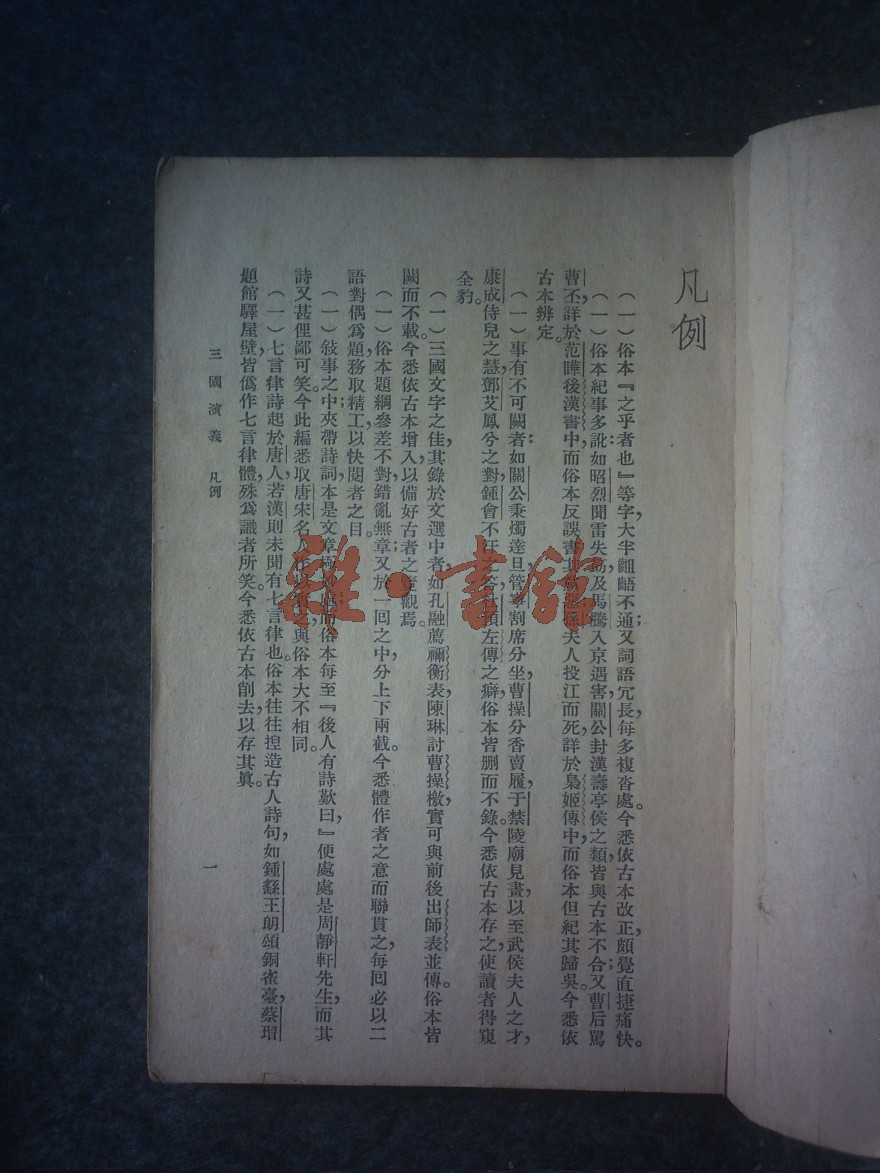 凡例
（一）俗本『之乎者也』等字，大半齟齬不通；又詞語冗長，每多複沓處。今悉依古本改正，頗覺直捷痛快。
（一）俗本紀事多訛，如昭烈聞雷失筯，及馬騰入京遇害，關公封漢壽亭侯之類，皆與古本不合；又曹后罵
曹丕，詳於范曄後漢書中，而俗本反誤書其 孫夫人投江而死，詳於梟姬傳中，而俗本但紀其歸吳。今悉依
古本辨定。
（一）事有不可闕者：如關公秉燭達旦，管寧割席分坐，曹操分香賣履，于禁陵廟見畫，以至武侯夫人之才，
康成侍兒之慧，鄧艾鳳兮之對，鍾會不汗之答，杜預左傳之癖，俗本皆删而不錄。今悉依古本存之，使讀者得窺
全豹。
（一）三國文字之佳，其錄於文選中者，如孔融薦禰衡表，陳琳討曹操檄，實可與前後出師表並傳。俗本皆
闕而不載。今悉依古本增入，以備好古者之覽觀焉。
（一）俗本題綱參差不對，錯亂無章；又於一回之中，分上下兩截。今悉體作者之意而聯貫之，每回必以二
語對偶爲題，務取精工，以快閱者之目。
（一）敍事之中，夾帶詩詞，本是文章極 而俗本每至『後人有詩歎曰，』便處處是周靜軒先生，而其
詩又甚俚鄙可笑。今此編悉取唐宋名人作 之，與俗本大不相同。
（一）七言律詩，起於唐人，若漢則未聞有七言律也。俗本往往捏造古人詩句，如鍾繇王朗頌銅雀臺，蔡瑁
題館驛屋壁，皆僞作七言律體，殊爲識者所笑。今悉依古本削去，以存其眞。
三國演義 凡例
一
雜·書館